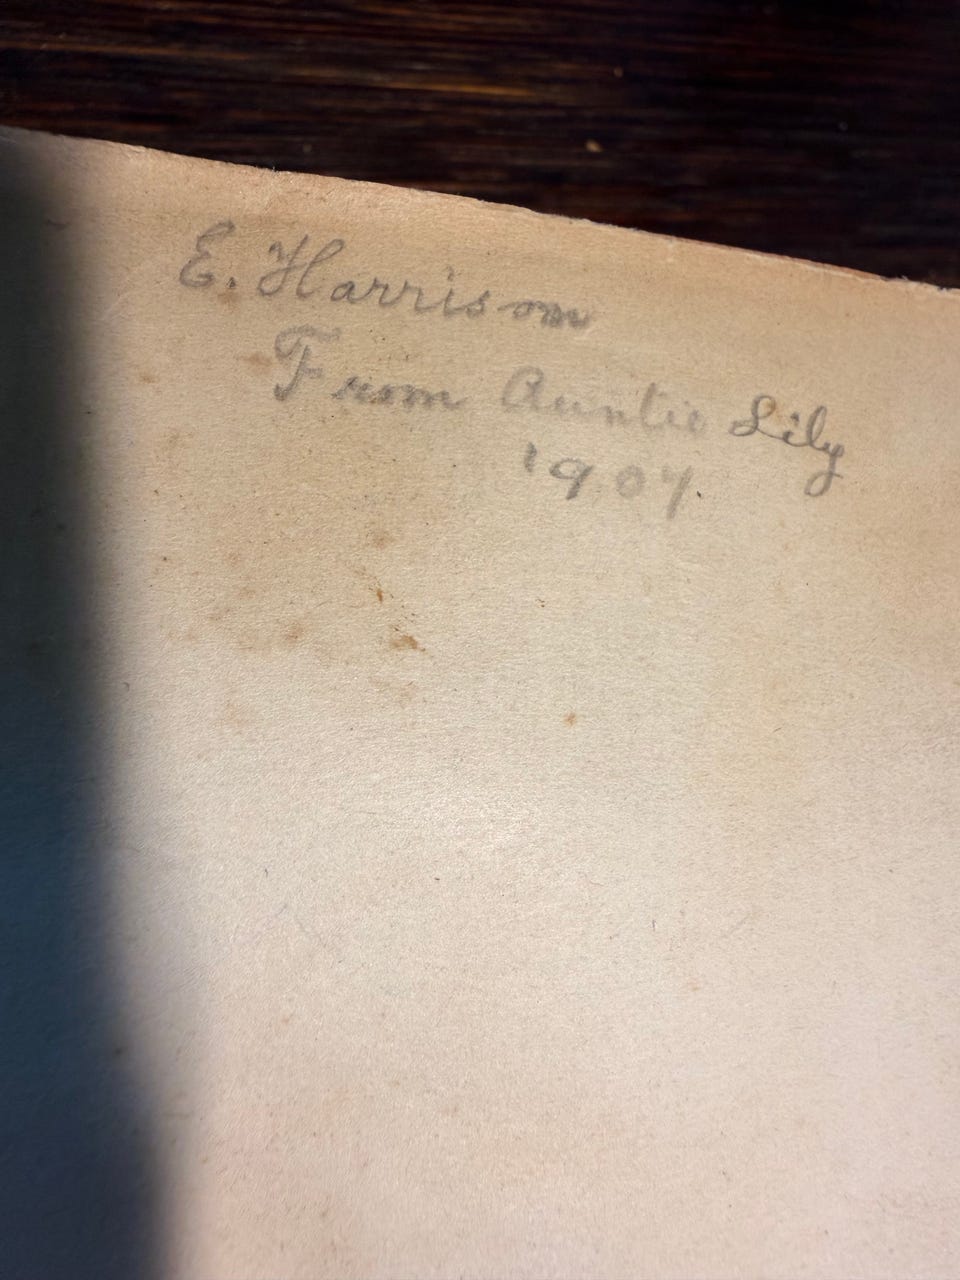 E. Harrison
From Auntie Lily
1907